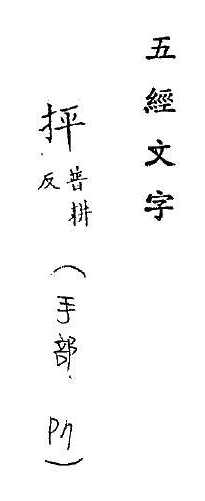 五經文字
抨普耕反(手部.P7)